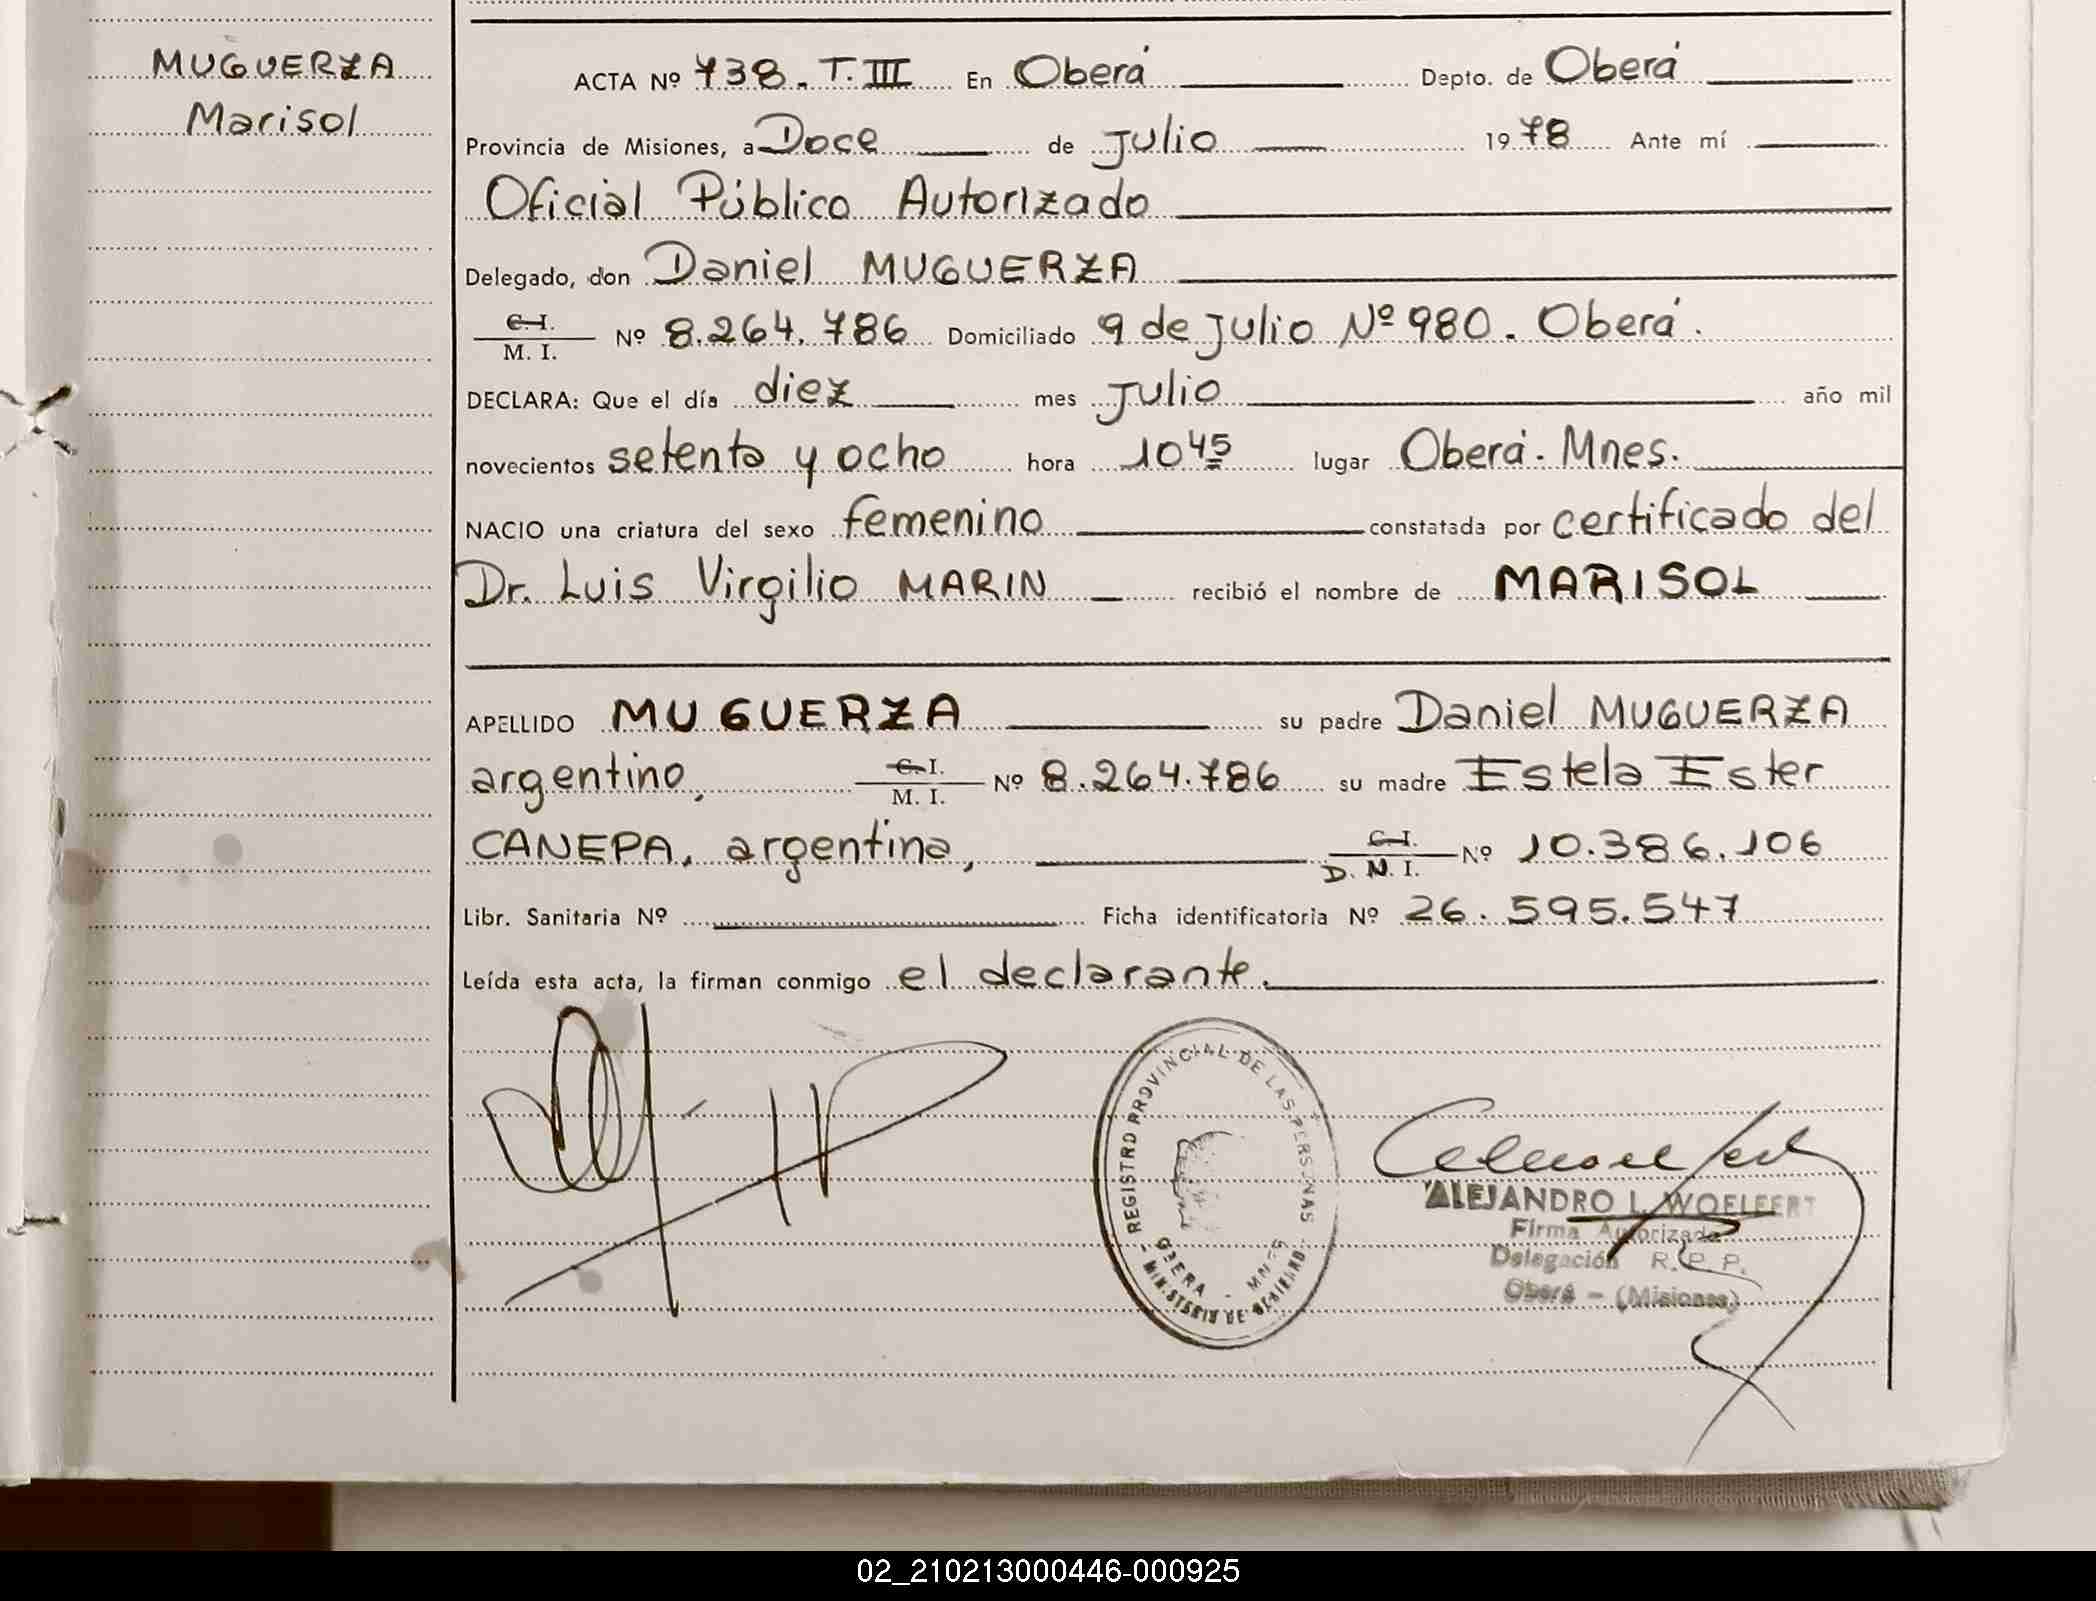 MUGUERZA
Marisol
ACTA Nº 738. T. III En Oberá Depto. de Oberá
Provincia de Misiones, a Doce de Julio 1978 Ante mí
Oficial Público Autorizado
Delegado, don Daniel MUGUERZA
C. I.
M. I. Nº 8.264.786 Domiciliado 9 de Julio Nº 980. Oberá.
DECLARA: Que el día diez mes Julio año mil
novecientos setenta y ocho hora 10 45 lugar Oberá. Mnes.
NACIO una criatura del sexo femenino constatada por certificado del
Dr. Luis Virgilio MARIN recibió el nombre de MARISOL
APELLIDO MUGUERZA su padre Daniel MUGUERZA
argentino, C. I.
M. I. Nº 8.264.786 su madre Estela Ester
CANEPA, argentina, C. I.
D. N. I. Nº 10.386.106
Libr. Sanitaria Nº Ficha identificatoria Nº 26.595.547
Leída esta acta, la firman conmigo el declarante.
REGISTRO PROVINCIAL DE LAS PERSONAS
OBERA - MNES
- MINISTERIO DE GOBIERNO -
ALEJANDRO L. WOELFERT
Firma Autorizada
Delegación R. P. P.
Oberá - (Misiones)
02_210213000446-000925